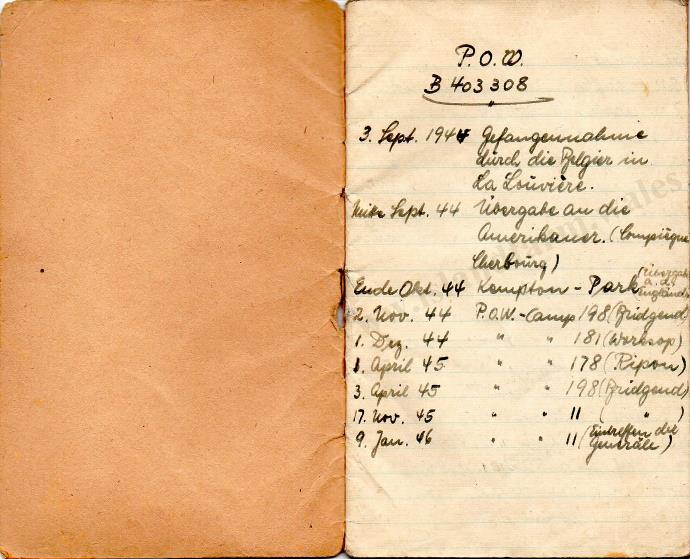 P.O.W.
B 403308
3. Sept. 1944 Gefangennahme
durch die Belgier in
La Louvière.
Mitte Sept. 44 Übergabe an die
Amerikaner. (Compiègne
Cherbourg)
Ende Okt. 44 Kempton-Park (Übergabe
a. d.
Engländer)
2. Nov. 44 P.O.W.-Camp 198 (Bridgend)
1. Dez. 44 " " 181 (Worksop)
1. April 45 " " 178 (Ripon)
3. April 45 " " 198 (Bridgend)
17. Nov. 45 " " 11 ( " )
9. Jan. 46 " " 11 (Eintreffen der
Generäle)